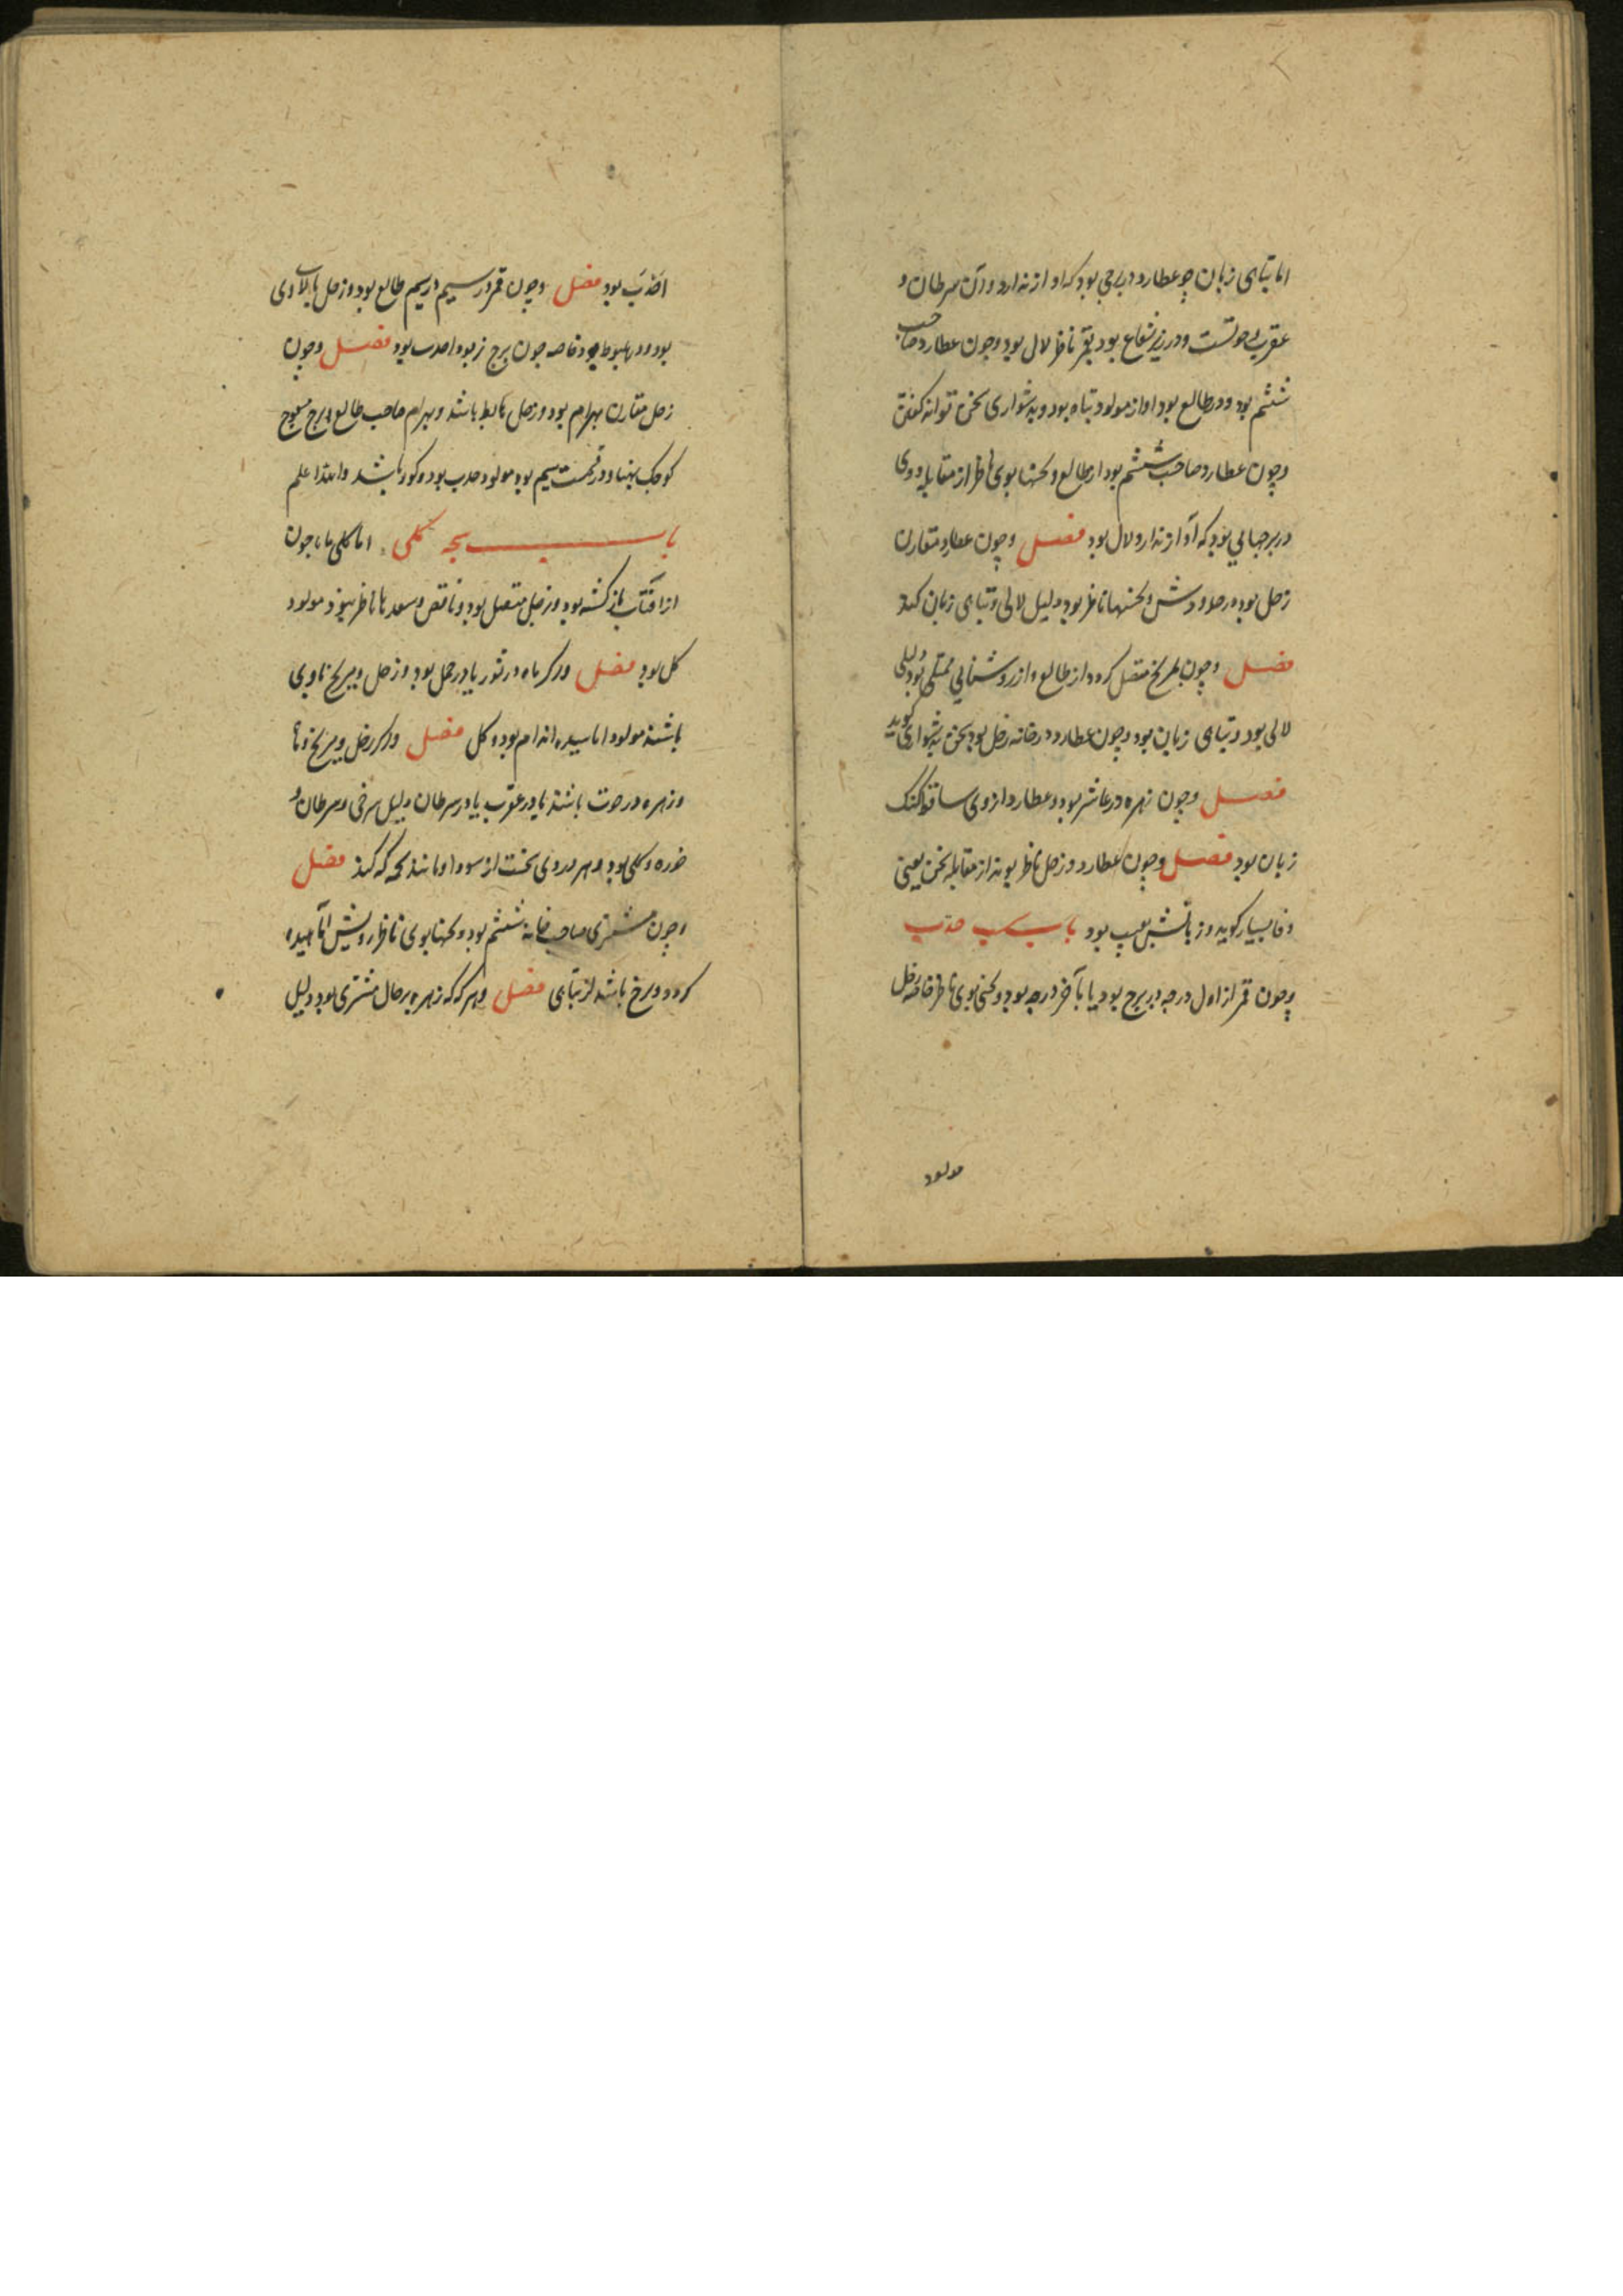 اما تباهی زبان چو عطارد در برجی بود که اواز ندارد و آن سرطان و
عقرب و حوتست و در زیر شعاع بود بقمر ناظر لال بود و چون عطارد صاحب
ششم بود و در طالع بود اواز مولود تباه بود و بدشواری سخن تواند گفتن
و چون عطارد صاحب ششم بود از طالع و نحسها بوی ناظر از مقابله و وی
در برجهایی بود که آواز ندارد لال بود فصل و چون عطارد مقارن
زحل بود در حدودش و نحسها ناظر بود دلیل لالی و تباهی زبان کند
فصل و چون بمریخ متصل گردد از طالع و از روشنایی ممتلی بود دلیل
لالی بود و تباهی زبان بود و چون عطارد در خانه زحل بود سخن بدشواری گوید
فصل و چون زهره در عاشر بود و عطارد از وی ساقط گنگ
زبان بود فصل و چون عطارد و زحل ناظر بوند از مقابله سخن یعنی
وفا بسیار گوید و زبانش بعیب بود باب حدب
و چون قمر از اول درجه در برج بود یا بآخر درجه بود و نحس بوی ناظر خاصه زحل
مولود
احدب بود فصل و چون قمر در سیم در سیم طالع بود و زحل بالای وی
بود و در هبوط بود خاصه چون برج بود احدب بود فصل و چون
زحل مقارن بهرام بود و زحل باشد و بهرام صاحب طالع برج معوج
کوچک پهنا و در قسمت سیم بود مولود حدب بود و کور باشد والله اعلم
باب کلی اما کلی چون
از آفتاب بازگشته بود و زحل متصل بود و ناقص و سعدها ناظر نبود مولود
کل بود فصل و اگر ماه در ثور یا در حمل بود و زحل و مریخ با وی
باشند مولود اما سپید اندام بود و کل فصل و اگر زحل و مریخ
و زهره در حوت باشند یا در عقرب یا در سرطان دلیل سرخی و سرطان و
خوره و کلی بود و هر دردی سخت از سودا و مانند فصل
و چون مشتری صاحب خانه ششم بود و نحسها بوی ناظر رویش
گردد و سرخ باشد از تباهی فصل و هرگه که زهره بر حال مشتری بود دلیل